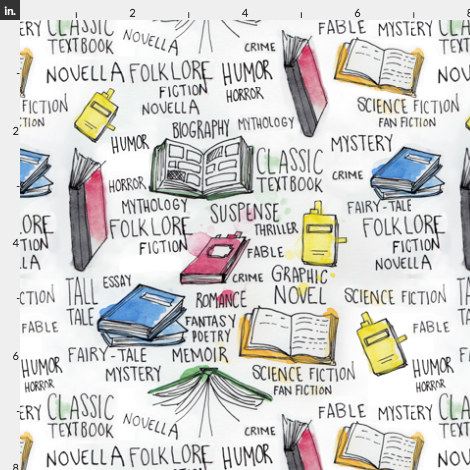 in.
2
4
6
8
2
4
6
8
ERY CLASSIC
TEXTBOOK
NOVELLA
CRIME
FABLE MYSTERY CLASSIC
TEXTBOOK
NOVELLA FOLKLORE HUMOR
FICTION
NOVELLA
HORROR
NOVELLA
FICTION
FICTION
SCIENCE FICTION
FAN FICTION
HUMOR
BIOGRAPHY MYTHOLOGY
MYSTERY
CLASSIC
TEXTBOOK
CRIME
HORROR
MYTHOLOGY
FOLKLORE
FICTION
SUSPENSE
THRILLER
FABLE
FAIRY-TALE
FOLKLORE
FICTION
NOVELLA
LORE
FICTION
CRIME
GRAPHIC
NOVEL
TALL
TALE
ESSAY
ROMANCE
FANTASY
POETRY
MEMOIR
SCIENCE FICTION
FABLE
FICTION
FABLE
FAIRY-TALE
MYSTERY
SCIENCE FICTION
FAN FICTION
HUMOR
HORROR
HUMOR
HORROR
ERY CLASSIC
TEXTBOOK
NOVELLA
CRIME
FABLE MYSTERY CLASSIC
TEXTBOOK
NOVELLA FOLKLORE HUMOR
FICTION
NOVELLA